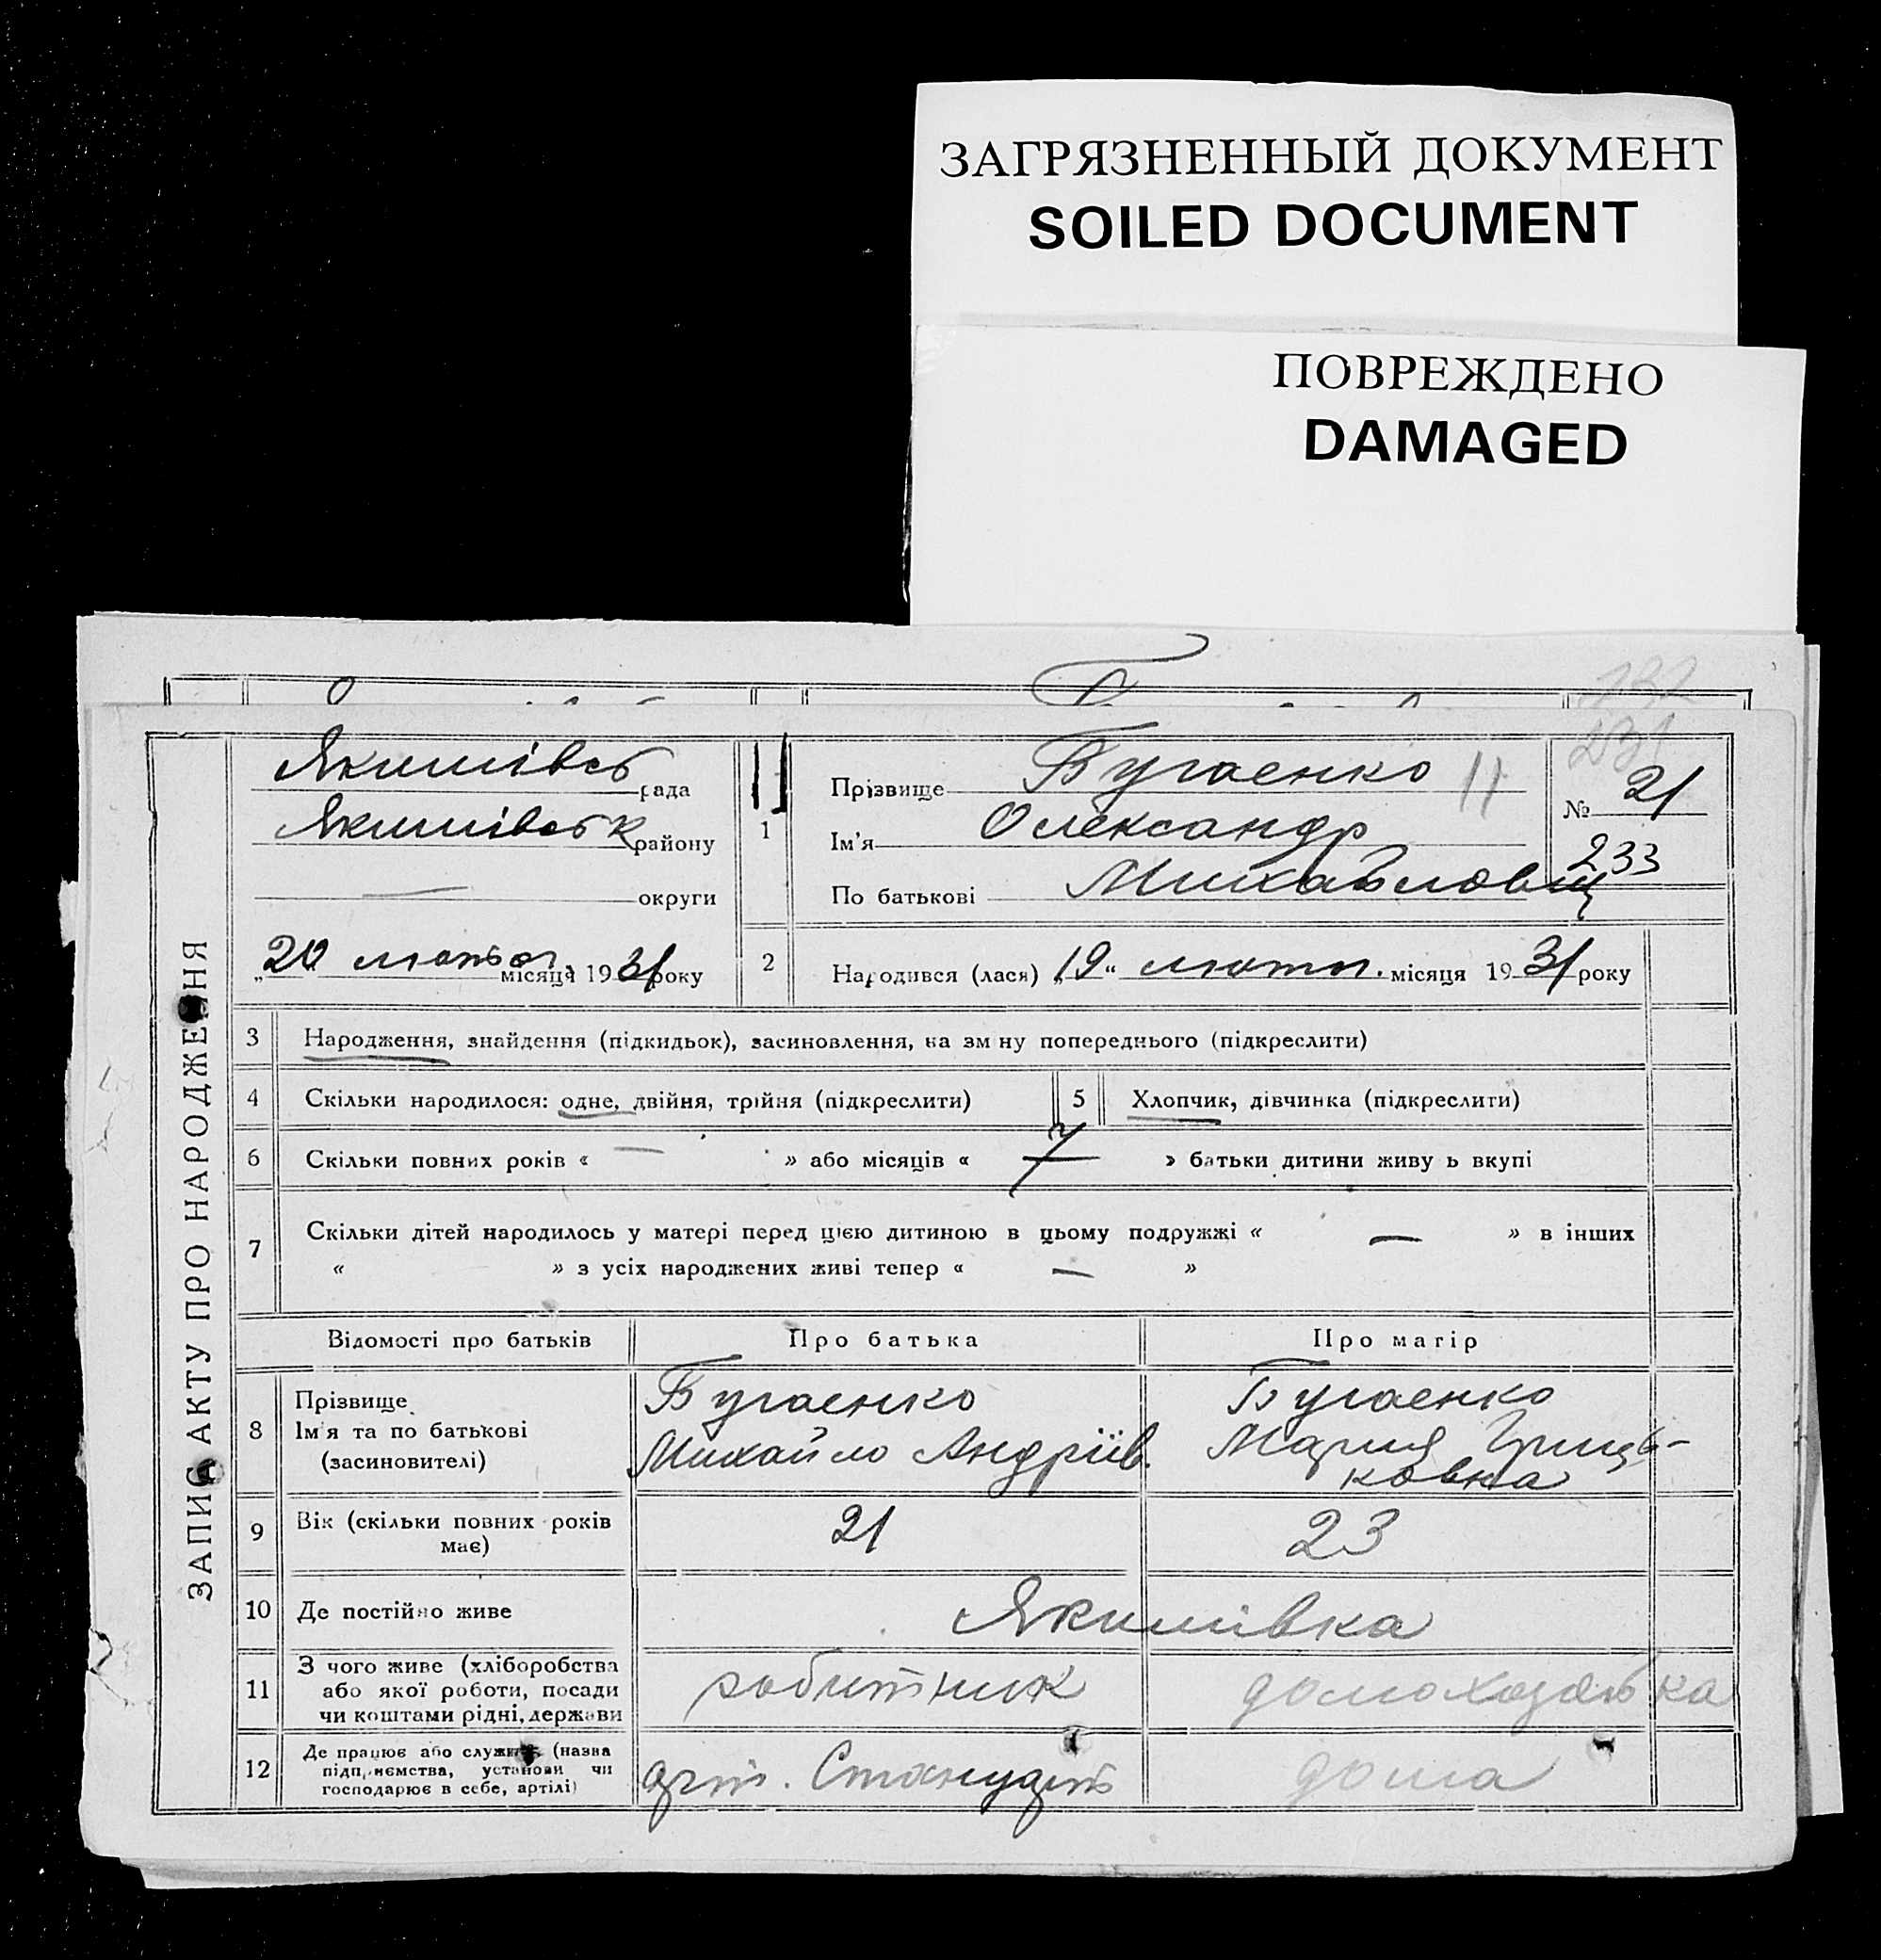 ЗАГРЯЗНЕННЫЙ ДОКУМЕНТ
SOILED DOCUMENT
ПОВРЕЖДЕНО
DAMAGED
132
231
ЗАПИС АКТУ ПРО НАРОДЖЕННЯ
Якимівсь рада
Якимівськ району
— округи
„20 лютого місяця 1931 року
1
Прізвище Бугаенко 11
Ім'я Олександр
По батькові Михайлович
№ 21
233
2 Народився (лася) „19“ лютого місяця 1931 року
3 Народження, знайдення (підкидьок), засиновлення, на зм ну попереднього (підкреслити)
4 Скільки народилося: одне, двійня, трійня (підкреслити) 5 Хлопчик, дівчинка (підкреслити)
6 Скільки повних років « — » або місяців « 7 » батьки дитини живу ь вкупі
7 Скільки дітей народилось у матері перед цією дитиною в цьому подружжі « — » в інших
« » з усіх народжених живі тепер « — »
Відомості про батьків Про батька Про матір
8 Прізвище Бугаенко Бугаенко
Ім'я та по батькові Михайло Андріїв. Мария Гриць-
(засиновителі) ковна
9 Вік (скільки повних років 21 23
має)
10 Де постійно живе Якимівка
11 З чого живе (хліборобства робитник домохозяйка
або якої роботи, посади
чи коштами рідні, держави
12 Де працює або служить (назва дома
підприємства, установи чи
господарює в себе, артілі)